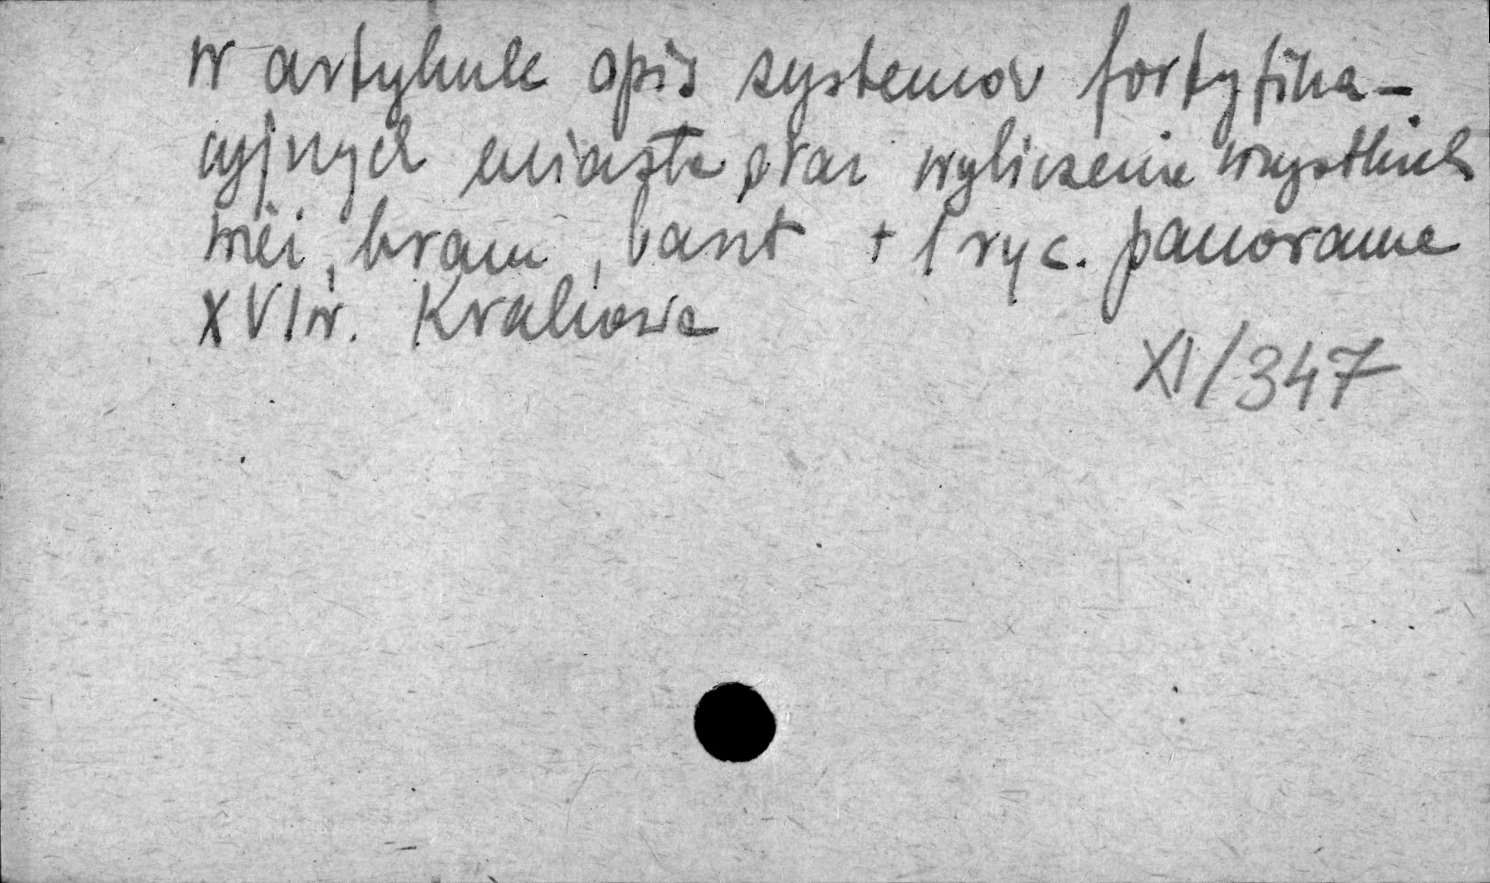 W artykule opis systemów fortyfika-
cyjnych miasta oraz wyliczenie wszystkich
wież, bram, baszt + 1 ryc. panorama
XVI w. Krakowa
XI/347